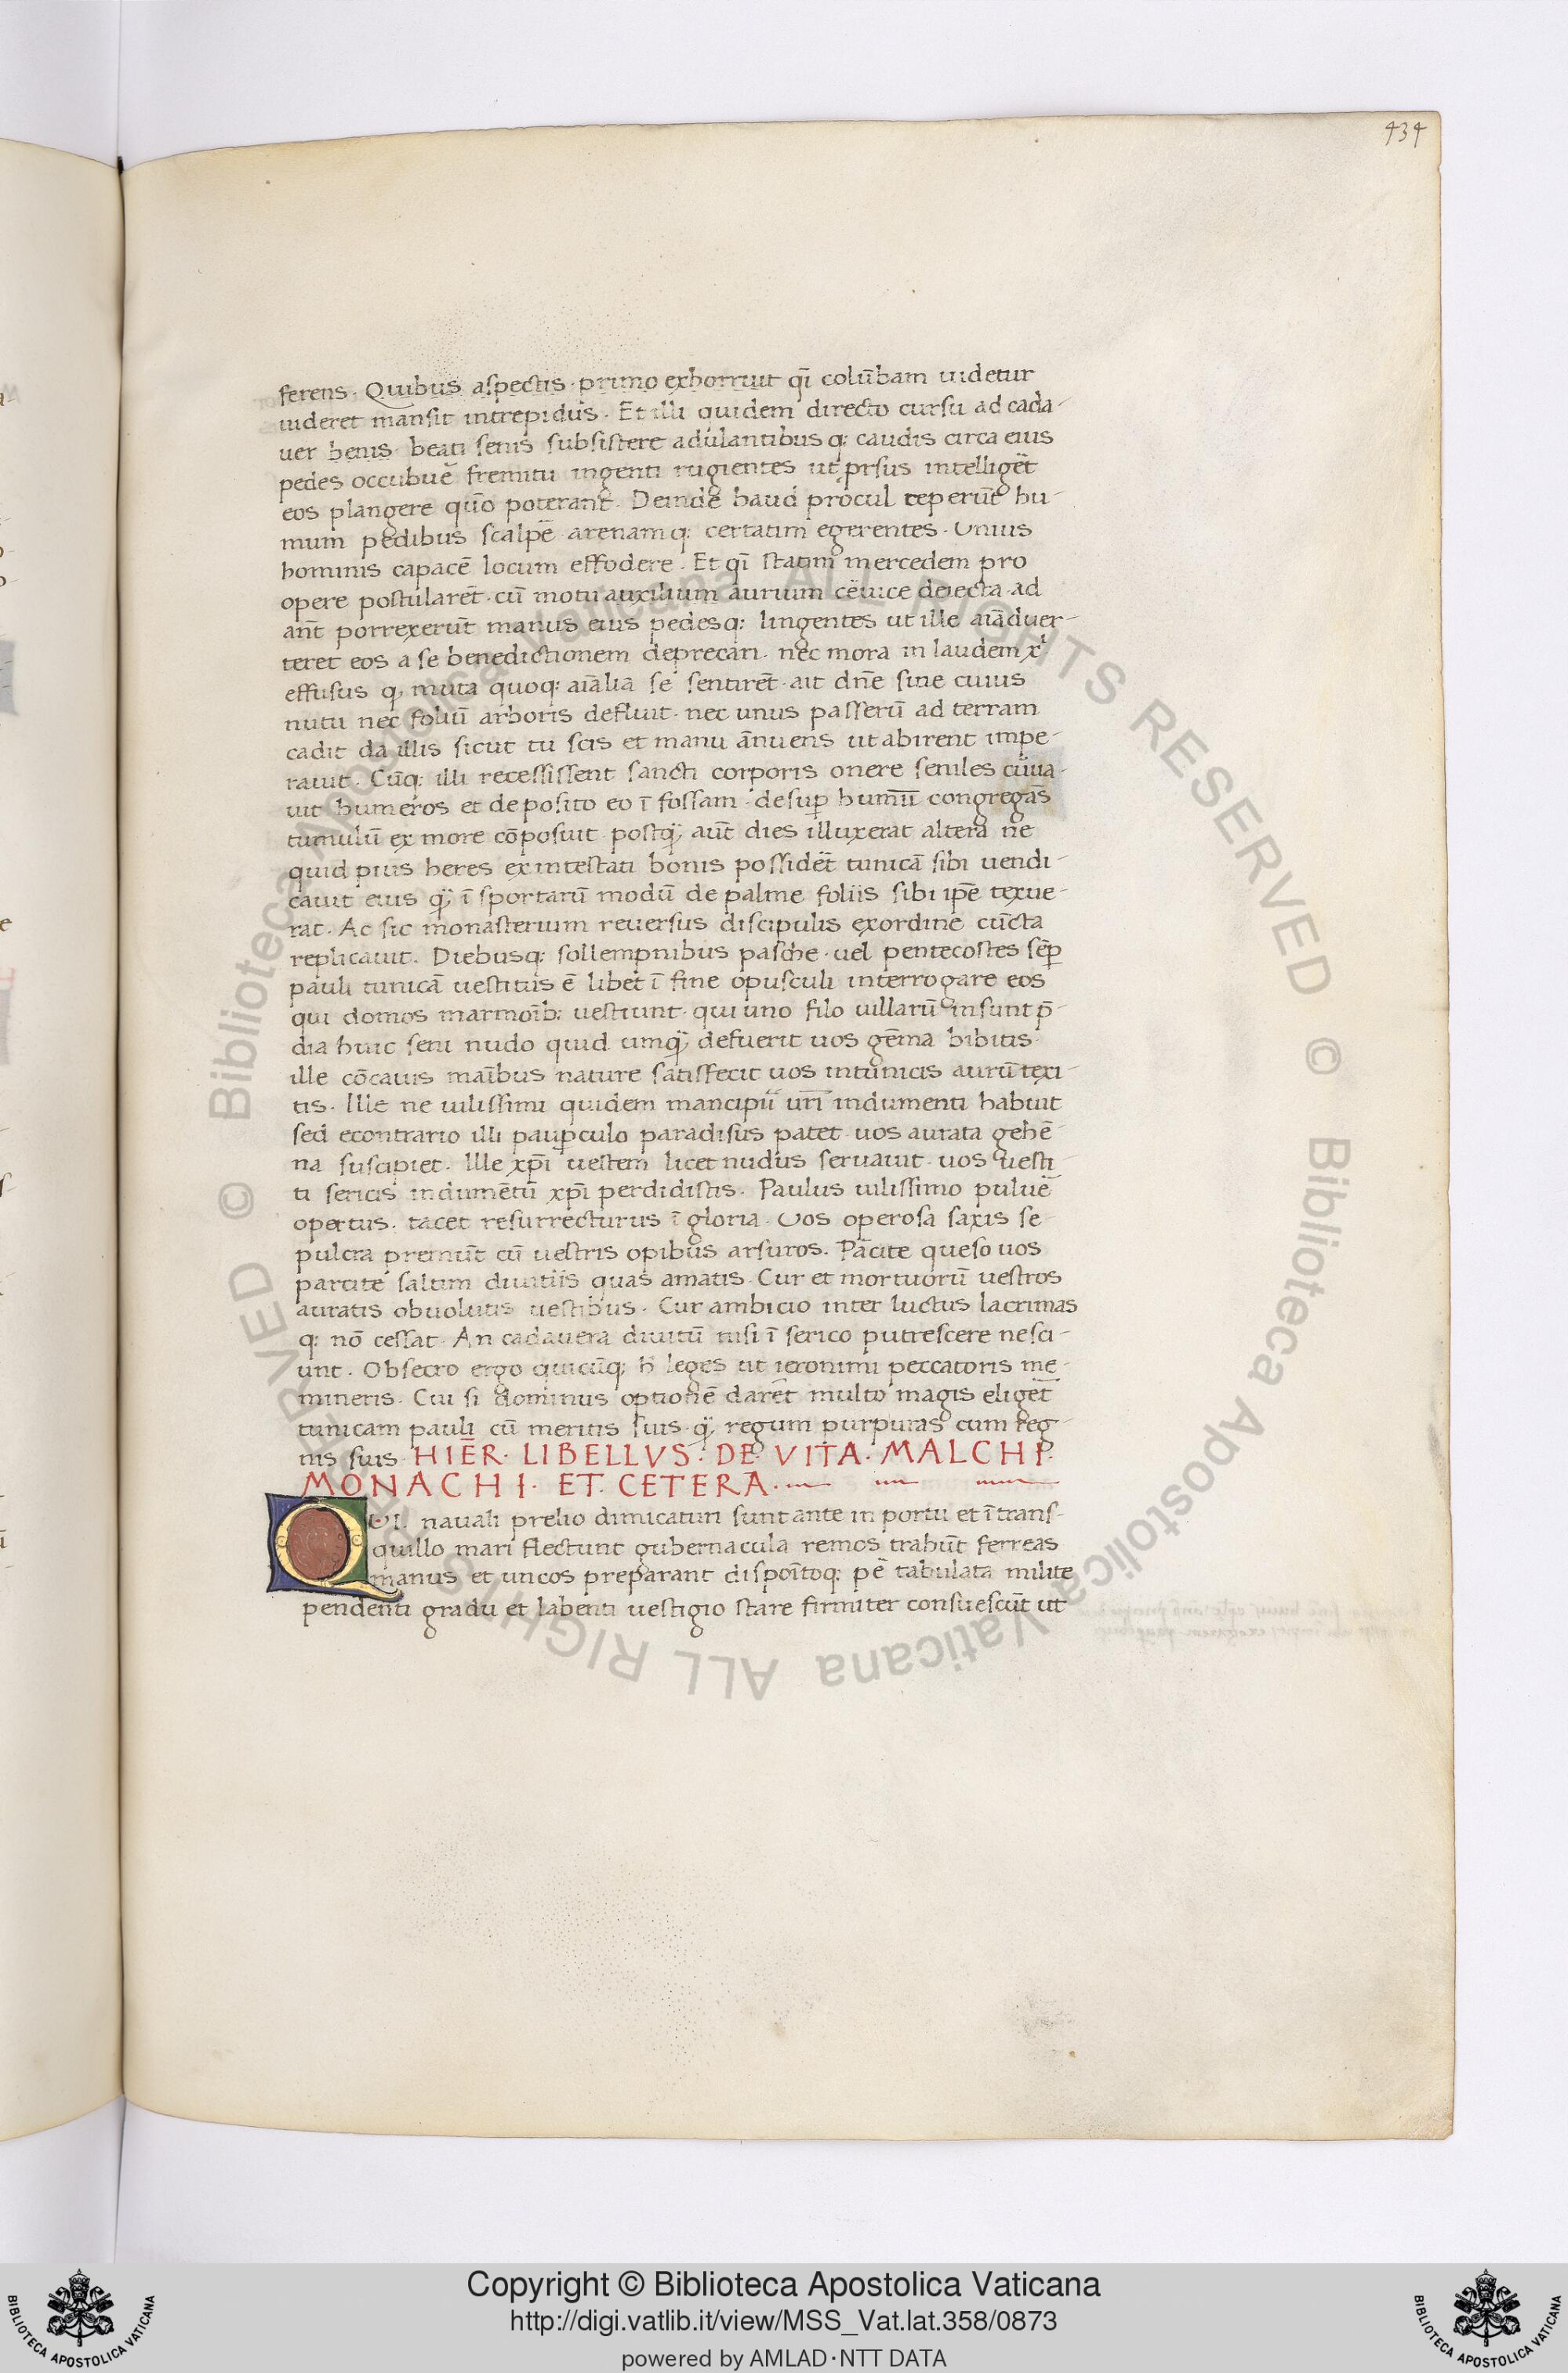 434
ferens. Quibus aspectis. primo exhorruit qī colūbam uidetur
uideret mansit intrepidus. Et illi quidem directo cursu ad cada-
uer benis. beati senis subsistere adulantibus q: caudis circa eius
pedes occubuē fremitu ingenti rugientes ut prsus intelligēt
eos plangere quō poterant. Deinde haud procul ceperūt hu-
mum pedibus scalpē arenamq: certatim egerentes. Unius
hominis capacē locum effodere. Et qī statim mercedem pro
opere postularēt. cū motu auxilium aurium cēuice deiecta. ad
ant̄ porrexerūt manus eius pedesq: lingentes ut ille aiāduer-
teret eos a se benedictionem deprecari. nec mora in laudem xp̄i
effusus q, muta quoq: aiālia se sentirēt. ait dn̄e sine cuius
nutu nec foliū arboris defluit. nec unus passerū ad terram
cadit da illis sicut tu scis et manu ānuens ut abirent impe-
rauit. Cūq: illi recessissent sancti corporis onere seniles cūua-
uit humeros et deposito eo ī fossam. desup̄ humū congregās
tumulū ex more cōposuit. postq̄ aūt dies illuxerat altera ne
quid pius heres ex intestati bonis possidēt tunicā sibi uendi-
cauit eius q̄ ī sportarū modū de palme foliis sibi ip̄e texue-
rat. Ac sic monasterium reuersus discipulis exordine cūcta
replicauit. Diebusq: sollempnibus pasche. uel pentecostes sēp̄
pauli tunicā uestitus ē libet ī fine opusculi interrogare eos
qui domos marmoīb: uestiunt. qui uno filo uillarū insunt p̄-
dia huic seni nudo quid umq̄ defuerit uos gēma bibitis.
ille cōcauis maībus nature satisfecit uos in tunicis aurū texi-
tis. Ille ne uilissimi quidem mancipii ur̄i indumenti habuit
sed econtrario illi paup̄culo paradisus patet. uos aurata gehē-
na suscipiet. Ille xp̄i uestem licet nudus seruauit. uos uesti-
ti sericis indumētū xp̄i perdidistis. Paulus uilissimo puluē
opertus. tacet resurrecturus ī gloria. Vos operosa saxis se-
pulcra premūt cū uestris opibus arsuros. Pācite queso uos
parcite saltim diuitiis quas amatis. Cur et mortuorū uestros
auratis obuolutis uestibus. Cur ambicio inter luctus lacrimas
q: nō cessat. An cadauera diuitū nisi ī serico putrescere nesci-
unt. Obsecro ergo quicūq: h̄ leges ut ieronimi peccatoris me-
mineris. Cui si dominus optionē darēt multo magis eligēt
tunicam pauli cū meritis suis. q̄ regum purpuras cum reg-
nis suis. HIER̄. LIBELLVS. DE. VITA. MALCHI.
MONACHI. ET. CETERA.
QVI. nauali prelio dimicaturi sunt ante in portu et ī trans-
quillo mari flectunt gubernacula remos trahūt ferreas
manus et uncos preparant dispoītoq: pē tabulata milite
pendenti gradu et labenti uestigio stare firmiter consuescūt ut
Copyright © Biblioteca Apostolica Vaticana
http://digi.vatlib.it/view/MSS_Vat.lat.358/0873
powered by AMLAD·NTT DATA
BIBLIOTECA APOSTOLICA VATICANA
BIBLIOTECA APOSTOLICA VATICANA
© Biblioteca Apostolica Vaticana ALL RIGHTS RESERVED
© Biblioteca Apostolica Vaticana ALL RIGHTS RESERVED